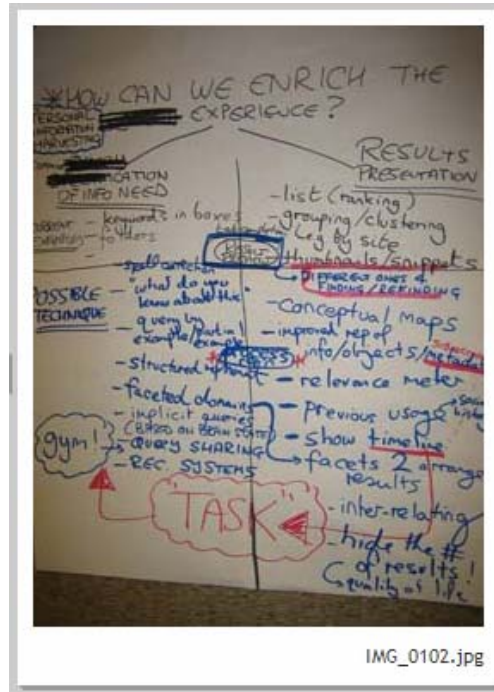 *HOW CAN WE ENRICH THE
EXPERIENCE?
PERSONAL
INFORMATION
HARVESTING
OF INFO NEED
- keywords in boxes
- folders
POSSIBLE
TECHNIQUE
- spell correction
- "what do you
know about this"
- query by
example/partial
example
- structured
- faceted domains
- implicit queries
(BASED ON BRAIN STATE)
→ QUERY SHARING
- REC. SYSTEMS
gym!
RESULTS
PRESENTATION
- list (ranking)
- grouping/clustering
e.g by site
- thumbnails/snippets
→ DIFFERENT ONES 4
FINDING/REFINDING
- conceptual maps
- improved rep of
info/objects/metadata
- relevance meter
- previous usage
- show timeline
→ facets 2 arrange
results
- inter-relating
- hide the #
of results!
→ quality of life
"TASK"
IMG_0102.jpg